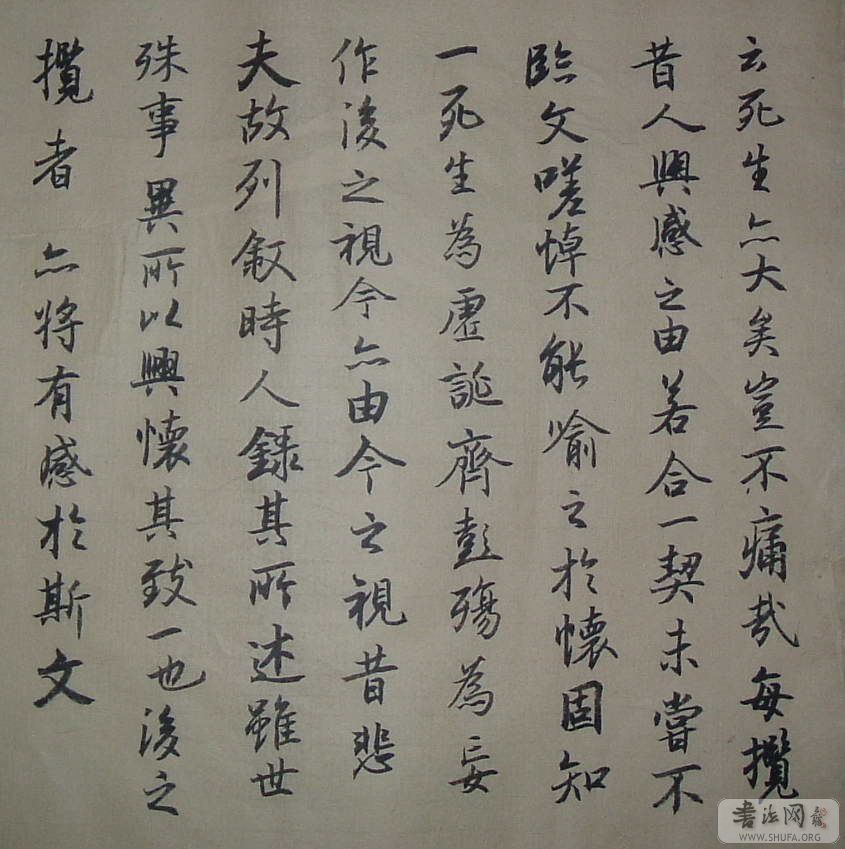 云死生亦大矣豈不痛哉每攬
昔人興感之由若合一契未嘗不
臨文嗟悼不能喻之於懷固知
一死生為虛誕齊彭殤為妄
作後之視今亦由今之視昔悲
夫故列敘時人錄其所述雖世
殊事異所以興懷其致一也後之
攬者亦將有感於斯文
書法网
WWW.SHUFA.ORG